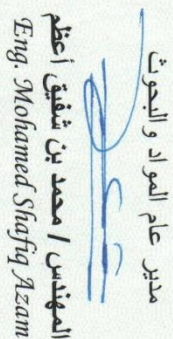 مدير عام المواد والبحوث
المهندس / محمد بن شفيق أعظم
Eng. Mohamed Shafiq Azam